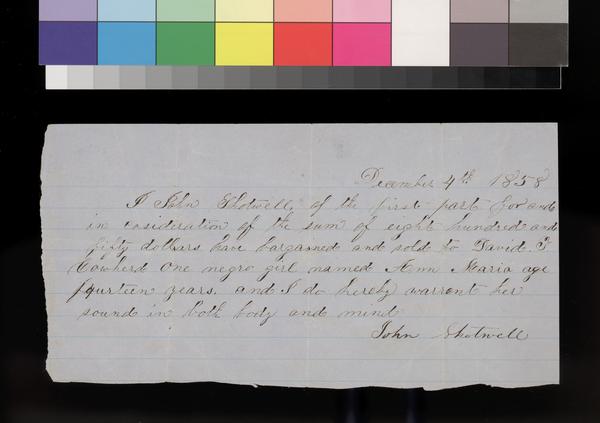 December 4th 1858
I John Shotwell, of the first part for and
in cosideration of the sum of eight hundred and
fifty dollars have bargained and sold to David F
Cowherd One negro girl named Ann Maria age
fourteen years. and I do hereby warrent her
sound in both body and mind
John Shotwell